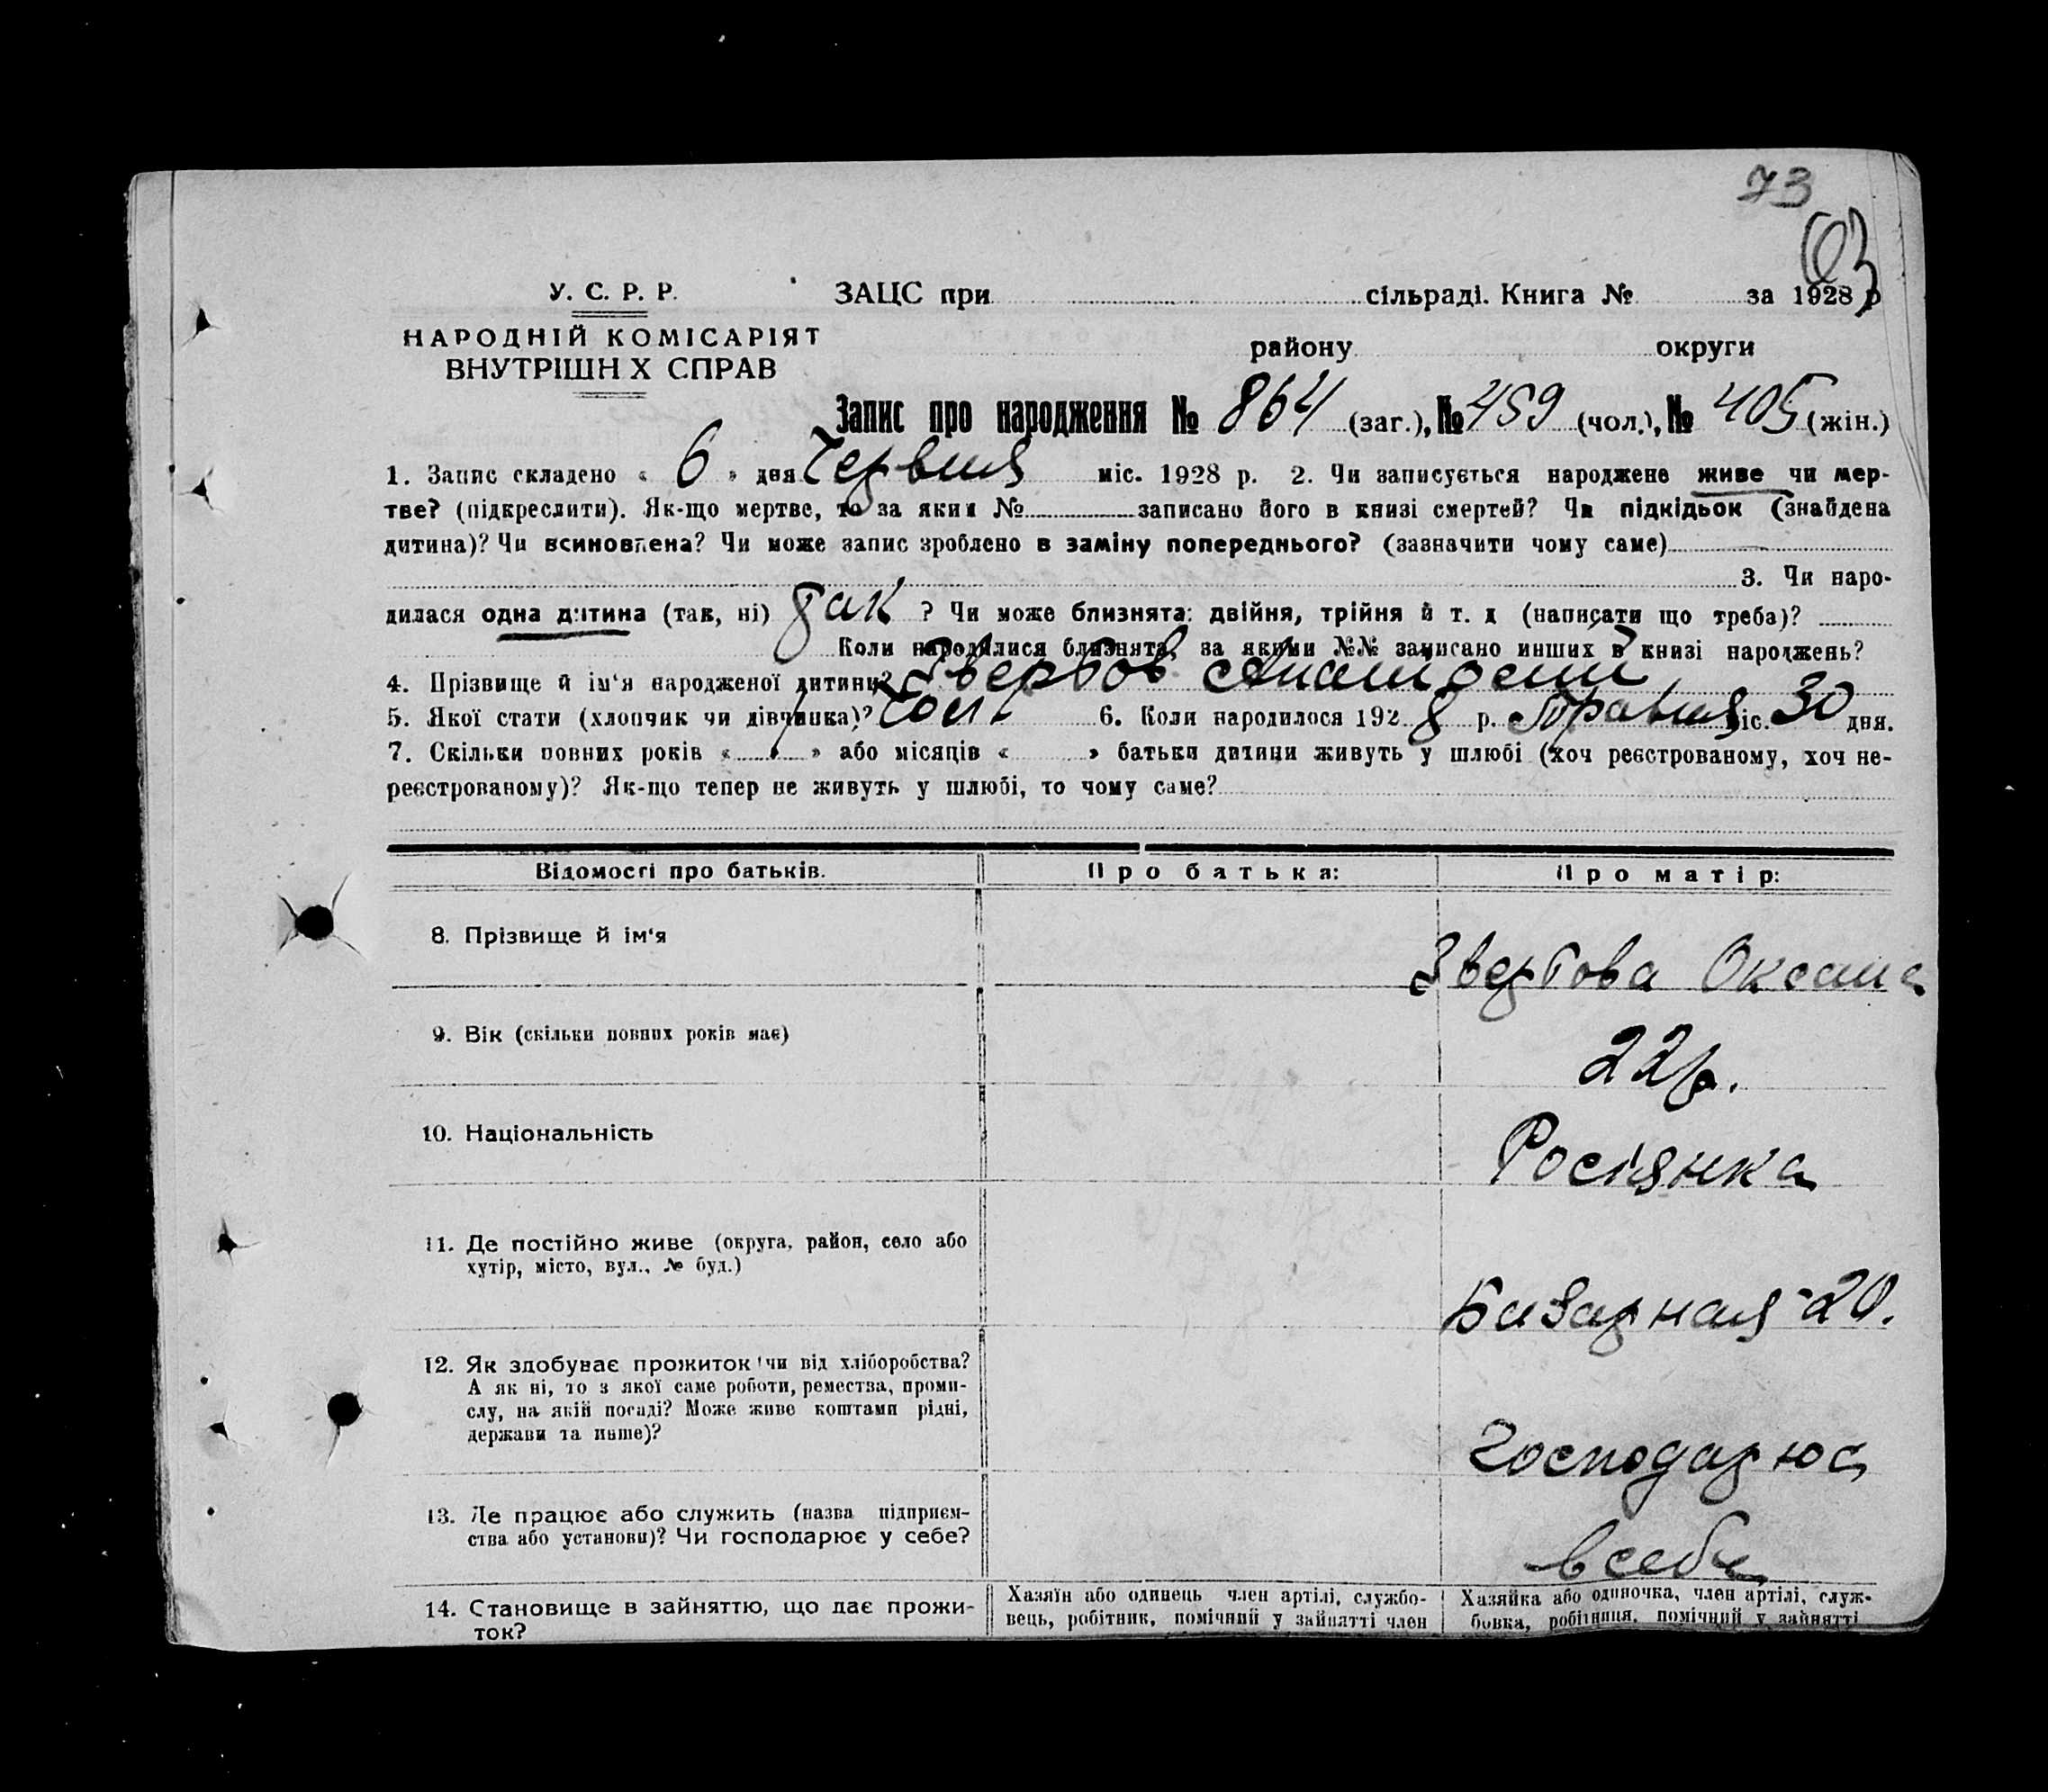 73
У. С. Р. Р.
ЗАЦС при сільраді. Книга № за 1928 р
НАРОДНІЙ КОМІСАРІЯТ
ВНУТРІШН Х СПРАВ
району округи
Запис про народження № 864 (заг.), № 459 (чол.), № 405 (жін.)
1. Запис складено « 6 » дня Червня міс. 1928 р. 2. Чи записується народжене живе чи мер-
тве? (підкреслити). Як-що мертве, то за яким № записано його в книзі смертей? Чи підкідьок (знайдена
дитина)? Чи всиновлена? Чи може запис зроблено в заміну попереднього? (зазначити чому саме)
3. Чи наро-
дилася одна дитина (так, ні) так ? Чи може близнята: двійня, трійня й т. д (написати що треба)?
Коли народилися близнята, за якими №№ записано инших в книзі народжень?
4. Прізвище й ім'я народженої дитини?
5. Якої стати (хлопчик чи дівчинка)? Чол. 6. Коли народилося 1928 р. Травня міс. 30 дня.
7. Скільки повних років « » або місяців « » батьки дитини живуть у шлюбі (хоч реєстрованому, хоч не-
реєстрованому)? Як-що тепер не живуть у шлюбі, то чому саме?
Відомості про батьків. Про батька: Про матір:
8. Прізвище й ім'я Оксана
9. Вік (скільки повних років має) 22 р.
10. Національність Росіянка
11. Де постійно живе (округа, район, село або
хутір, місто, вул., № буд.)
Базарная-20.
12. Як здобуває прожиток чи від хліборобства?
А як ні, то з якої саме роботи, ремества, проми-
слу, на якій посаді? Може живе коштами рідні,
держави та инше)?
13. Де працює або служить (назва підприєм-
ства або установи)? Чи господарює у себе?
в себе
14. Становище в зайняттю, що дає прожи-
ток?
Хазяїн або одинець член артілі, службо-
вець, робітник, помічний у зайнятті член
Хазяйка або одиночка, член артілі, служ-
бовка, робітниця, помічний у зайнятті